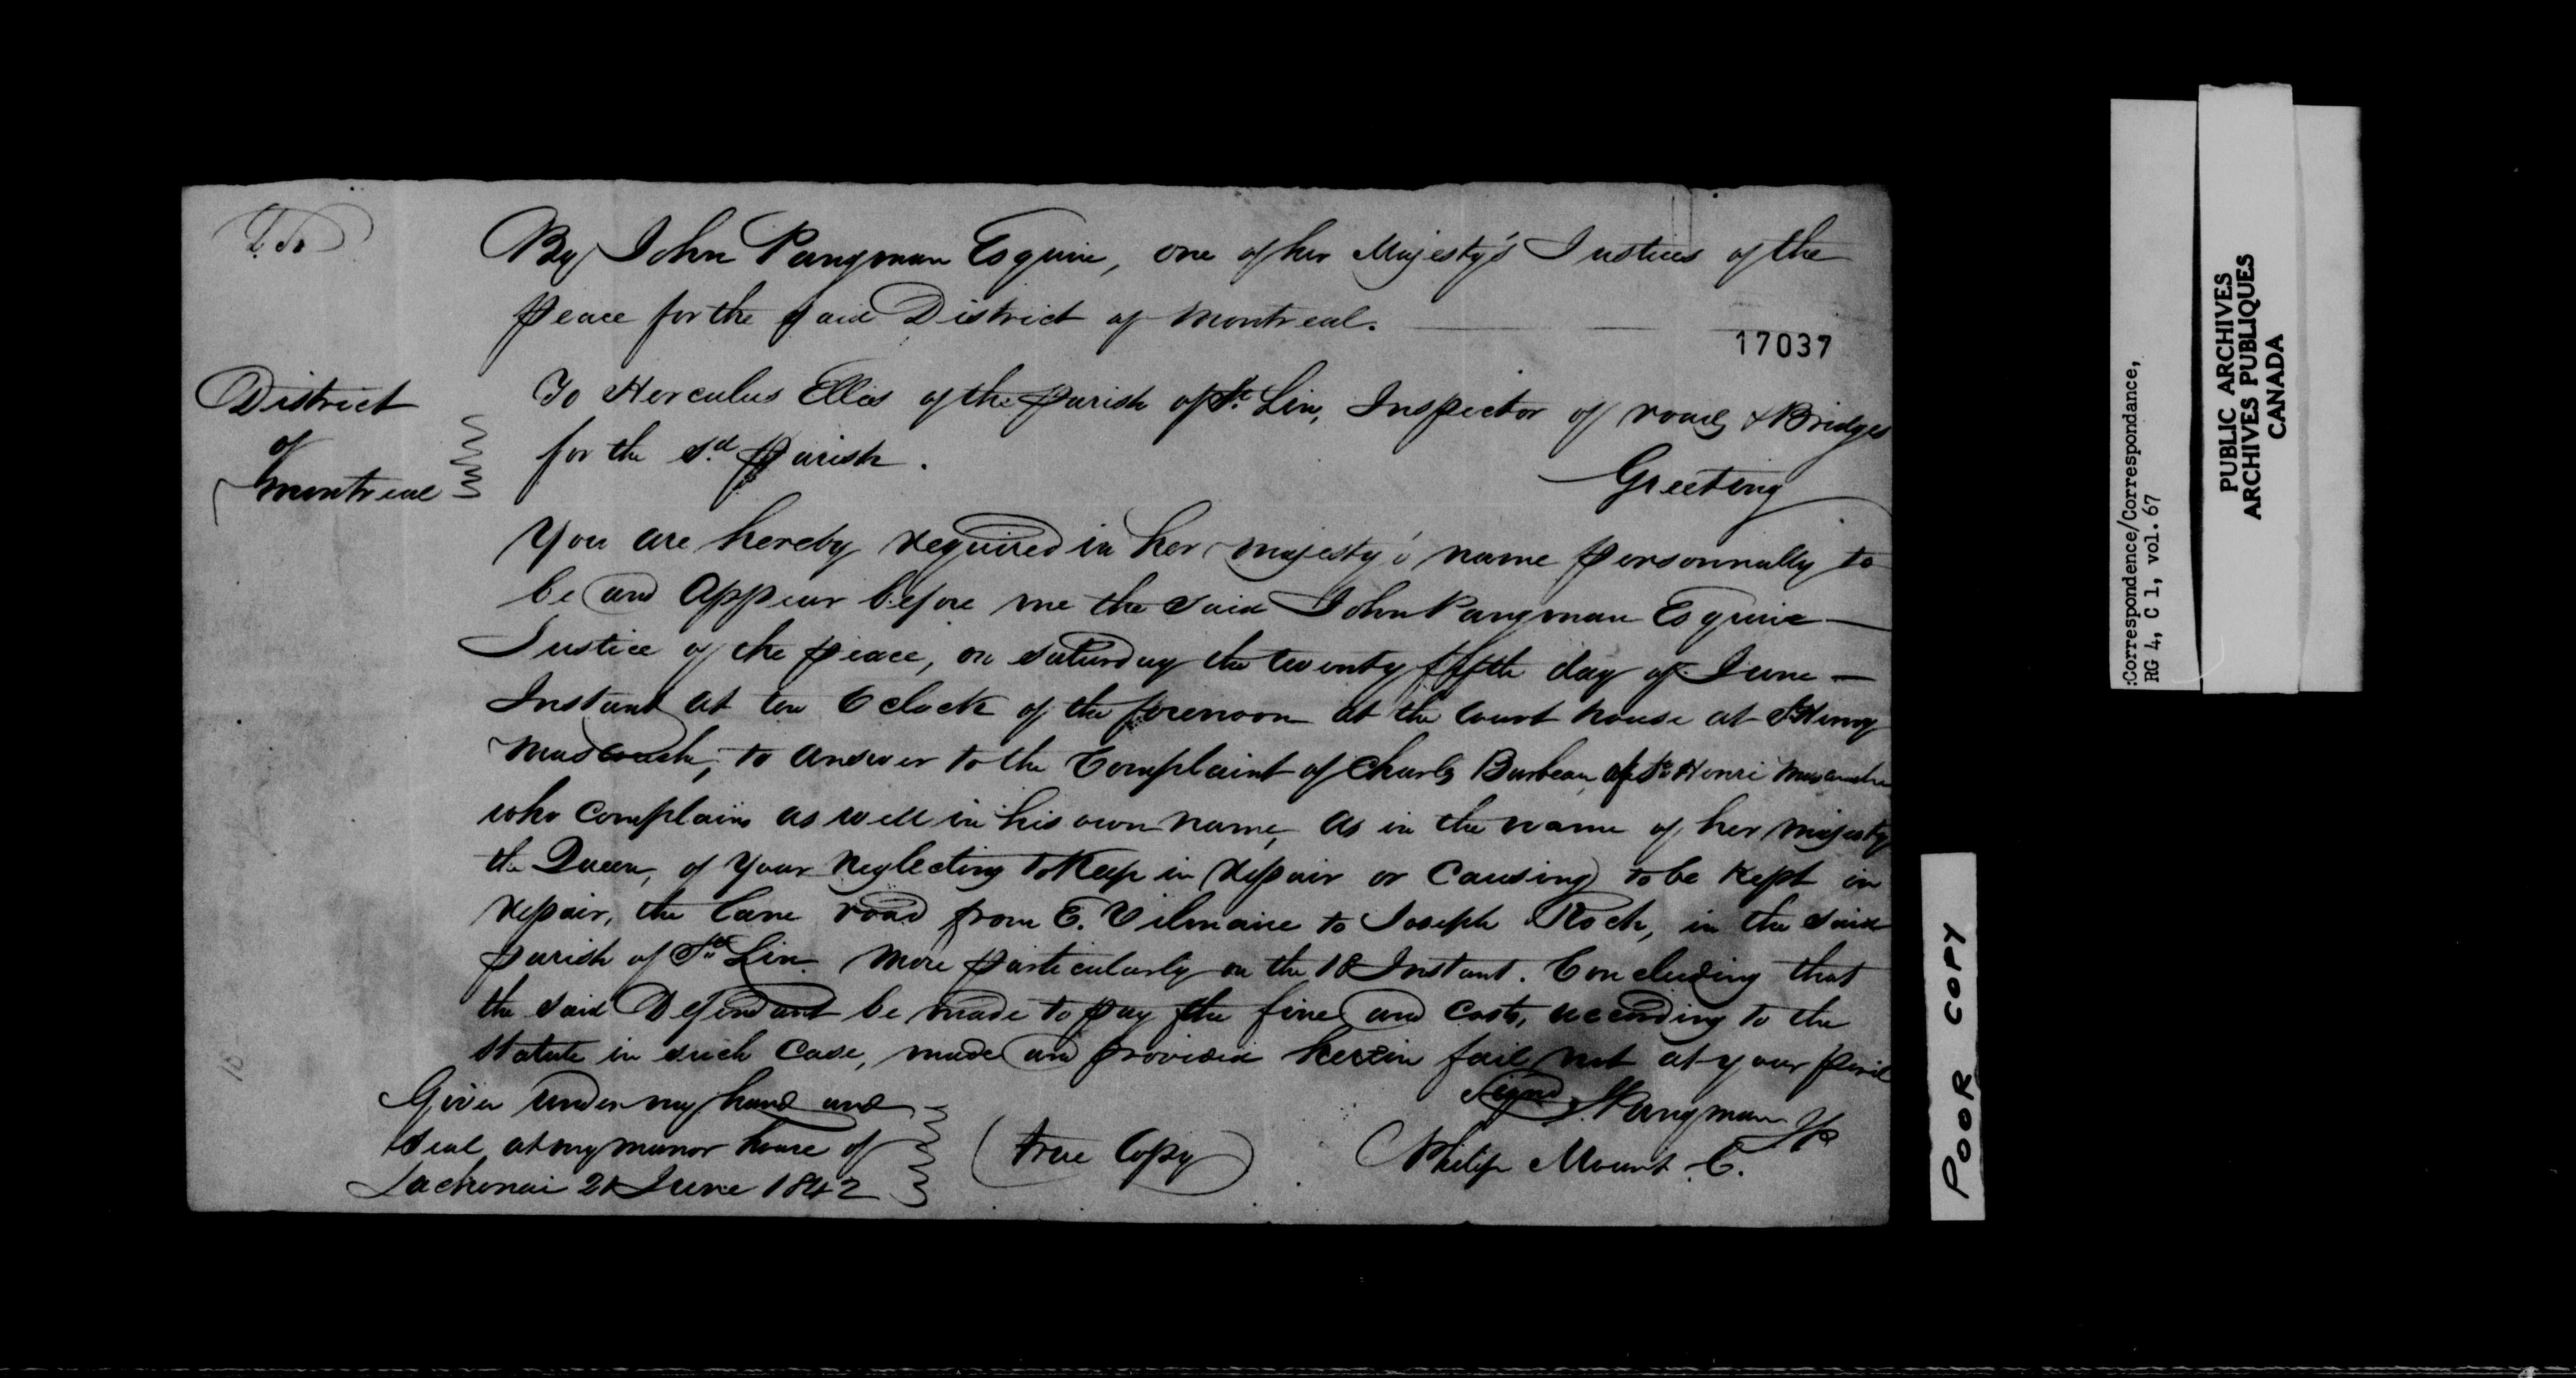 By John Pangman Esquire, one of her Majesty's Justices of the
peace for the said District of Montreal.
17037
District
of
Montreal
To Herculus Ellis of the parish of St. Lin, Inspector of roads & Bridges
for the sd. parish.
Greeting
You are hereby required in her majesty's name personnally to
be and appear before me the said John Pangman Esquire
Justice of the peace, on saturday the twenty fifth day of June
Instant at ten O clock of the forenoon at the court house at St Henry
Mascouche, to answer to the Complaint of Charles Barbeau, of St. Henri Mascouche
who complains as well in his own name, as in the name of her majesty
the Queen, of your neglecting to Keep in repair or Causing to be Kept in
repair, the Cane road from E. Vilmaire to Joseph Roch, in the said
parish of St. Lin. More particularly on the 18 Instant. Concluding that
the said Defendant be made to pay the fine and costs, according to the
statute in such Case, made and provided herein fail not at your peril
Given under my hand and
seal at my manor house of
Lachenai 21 June 1842
(true Copy)
Signed J. Pangman JP
Philip Mount C.
:Correspondence/Correspondance,
RG 4, C 1, vol. 67
PUBLIC ARCHIVES
ARCHIVES PUBLIQUES
CANADA
POOR COPY